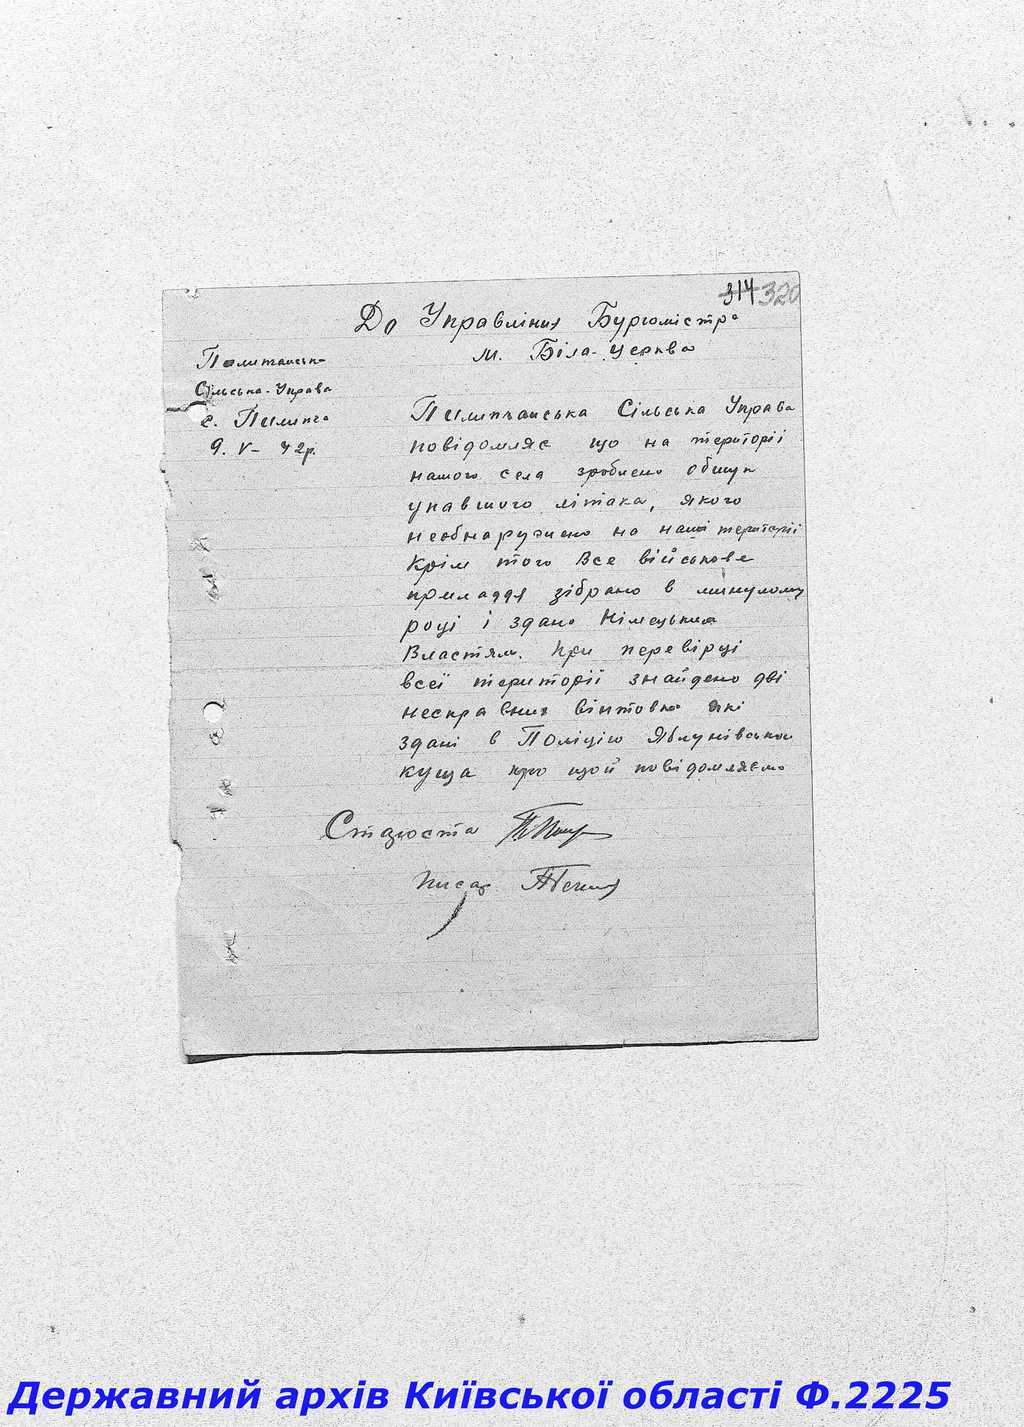 314 320
До Управління Бургомістра
м. Біла-Церква
Пилипчанська
Сільська-Управа
с. Пилипча
9. V – 42р.
Пилипчанська Сільська Управа
повідомляє що на території
нашого села зроблено обшук
упавшого літака, якого
необнаружено на нашій території
Крім того все військове
приладдя зібрано в минулому
році і здано Німецьким
Властям. При перевірці
всеї території знайдено дві
несправних вінтовки які
здані в Поліцію Яблунівського
куща про що й повідомляємо
Староста
писар
Державний архів Київської області Ф.2225